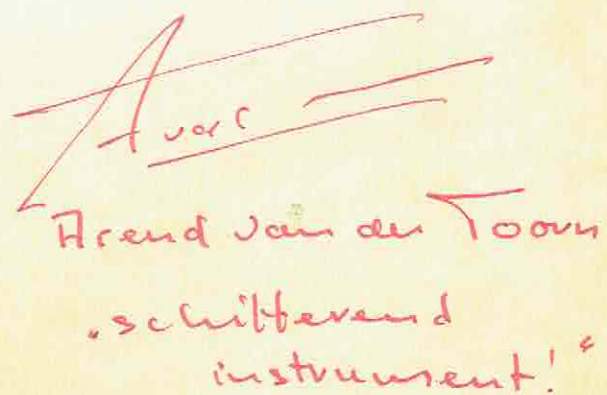 Arend van der Toorn
„schitterend
instrument!“